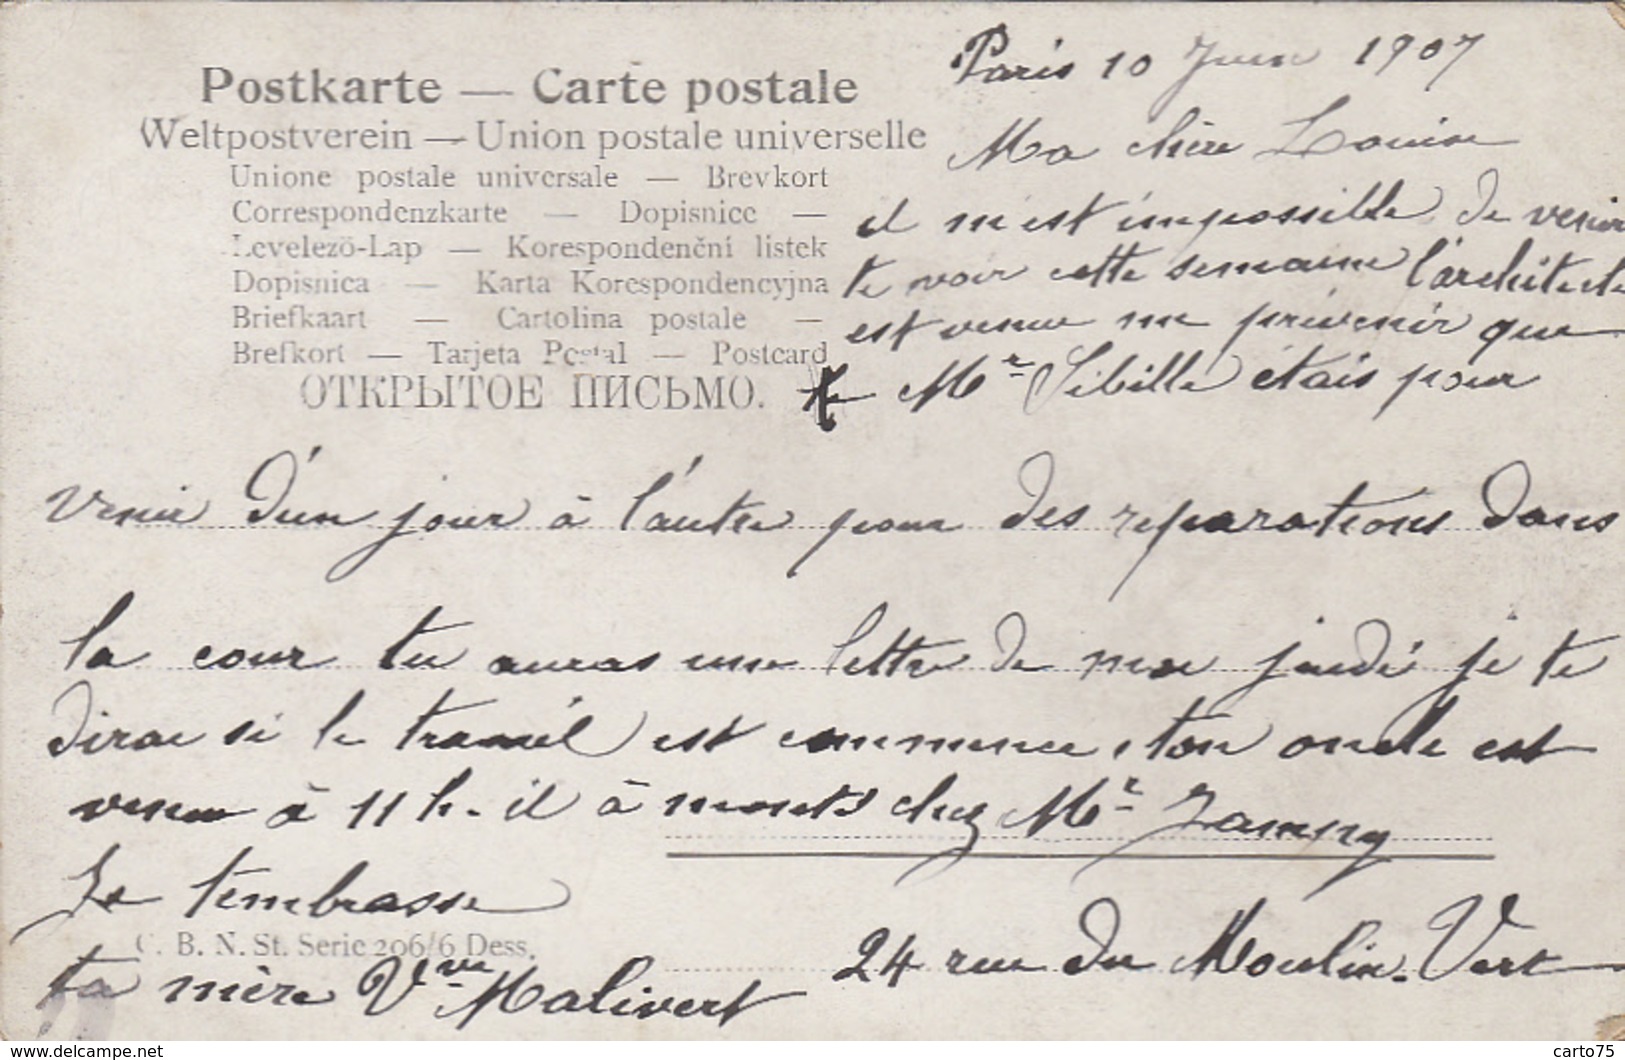 Paris 10 Juin 1907
Postkarte — Carte postale
Weltpostverein — Union postale universelle
Unione postale universale — Brevkort
Correspondenzkarte — Dopisnice —
Levelező-Lap — Korespondenční listek
Dopisnica — Karta Korespondencyjna
Briefkaart — Cartolina postale —
Brefkort — Tarjeta Postal — Postcard
ОТКРЫТОЕ ПИСЬМО.
Ma chère Louise
il m'est impossible de venir
te voir cette semaine l'architecte
est venue me prévenir que
Mr Sibille étais pour
venir d'un jour à l'autre pour des reparations dans
la cour tu auras une lettre de moi jeudi je te
dirai si le travail est commencé, ton oncle est
venu à 11 h. il à monté chez Mr
Je t'embrasse
C. B. N. St. Serie 206/6 Dess.
ta mère Vve Malivert
24 rue du Moulin-Vert
carto75
www.delcampe.net